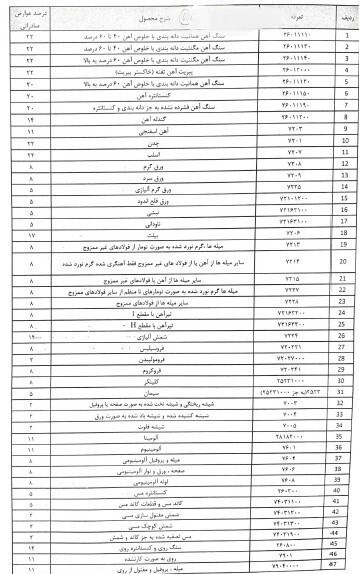 ردیف تعرفه شرح محصول درصد عوارض صادراتی
1 ۲۶۰۱۱۱۱۰ سنگ آهن هماتیت دانه بندی با خلوص آهن ۴۰ تا ۶۰ درصد ۲۲
2 ۲۶۰۱۱۱۲۰ سنگ آهن مگنتیت دانه بندی با خلوص آهن ۴۰ تا ۶۰ درصد ۲۲
3 ۲۶۰۱۱۱۴۰ سنگ آهن مگنتیت دانه بندی با خلوص آهن ۶۰ درصد به بالا ۲۲
4 ۲۶۰۱۲۰۰۰ پیریت آهن تفته (خاکستر پیریت) ۲۲
5 ۲۶۰۱۱۱۳۰ سنگ آهن هماتیت دانه بندی با خلوص آهن ۶۰ درصد به بالا ۲۰
6 ۲۶۰۱۱۱۵۰ کنسانتره آهن ۲۰
7 ۲۶۰۱۱۱۹۰ سنگ آهن فشرده نشده به جز دانه بندی و کنسانتره ۲۰
8 ۲۶۰۱۱۲۰۰ گندله آهن ۱۴
9 ۷۲۰۳ آهن اسفنجی ۱۱
10 ۷۲۰۱ چدن ۲۲
11 ۷۲۰۷ اسلب ۲۲
12 ۷۲۰۸ ورق گرم ۸
13 ۷۲۰۹ ورق سرد ۸
14 ۷۲۲۵ ورق گرم آلیاژی ۵
15 ۷۲۱۰۱۲۰۰ ورق قلع اندود ۵
16 ۷۲۱۶۲۱۰۰ نبشی ۵
17 ۷۲۱۶۳۱۰۰ ناودانی ۵
18 ۷۲۰۶ بیلت ۱۷
19 ۷۲۱۳ میله ها ،گرم نورد شده به صورت تومار از فولادهای غیر ممزوج ۸
20 ۷۲۱۴ سایر میله ها از آهن یا از فولاد های غیر ممزوج فقط آهنگری شده گرم نورد شده ۸
21 ۷۲۱۵ سایر میله ها از آهن یا فولادهای غیر ممزوج ۸
22 ۷۲۲۷ میله ها گرم نورد شده به صورت تومارهای نا منظم از سایر فولادهای ممزوج ۸
23 ۷۲۲۸ سایر میله ها از فولادهای ممزوج ۸
24 ۷۲۱۶۳۲۰۰ تیرآهن با مقطع I ۸
25 ۷۲۱۶۳۳۰۰ تیرآهن با مقطع H ۸
26 ۷۲۲۴ شمش آلیاژی
27 ۷۲۰۲۲۱ فروسیلیس ۸
28 ۷۲۰۲۷۰۰۰ فرومولیبدن ۳
29 ۷۲۰۲۴۱ فروکروم ۸
30 ۲۵۲۳۱۰۰۰ کلینکر ۸
31 ۲۵۲۳(به جز ۲۵۲۳۱۰۰۰) سیمان ۵
32 ۷۰۰۳ شیشه ریختگی و شیشه تخت شده به صورت صفحه یا پروفیل ۲
33 ۷۰۰۴ شیشه کشیده شده و شیشه باد شده به صورت ورق ۲
34 ۷۰۰۵ شیشه فلوت ۲
35 ۲۸۱۸۲۰۰۰ آلومینا ۱۱
36 ۷۶۰۱ آلومینیوم ۱۱
37 ۷۶۰۴ میله و پروفیل آلومینیومی ۸
38 ۷۶۰۶ صفحه ، ورق و نوار آلومینیومی ۸
39 ۷۶۰۸ لوله آلومینیومی ۸
40 ۲۶۰۳۰۰ کنسانتره مس ۵
41 ۷۴۰۳۱۱۰۰ کاتد مس و قطعات کاتد مس ۵
42 ۷۴۰۳۱۲۰۰ شمش مفتول سازی مس ۲
43 ۷۴۰۳۱۳۰۰ شمش کوچک مسی ۲
44 ۷۴۰۳۱۹۰۰ مس تصفیه شده به جز کاتد و شمش ۲
45 ۲۶۰۸۰۰ سنگ روی و کنسانتره روی ۱۴
46 ۷۹۰۱ روی به صورت کارنشده ۱۱
47 ۷۹۰۴۰۰۰۰ میله ، پروفیل و مفتول از روی ۱۱